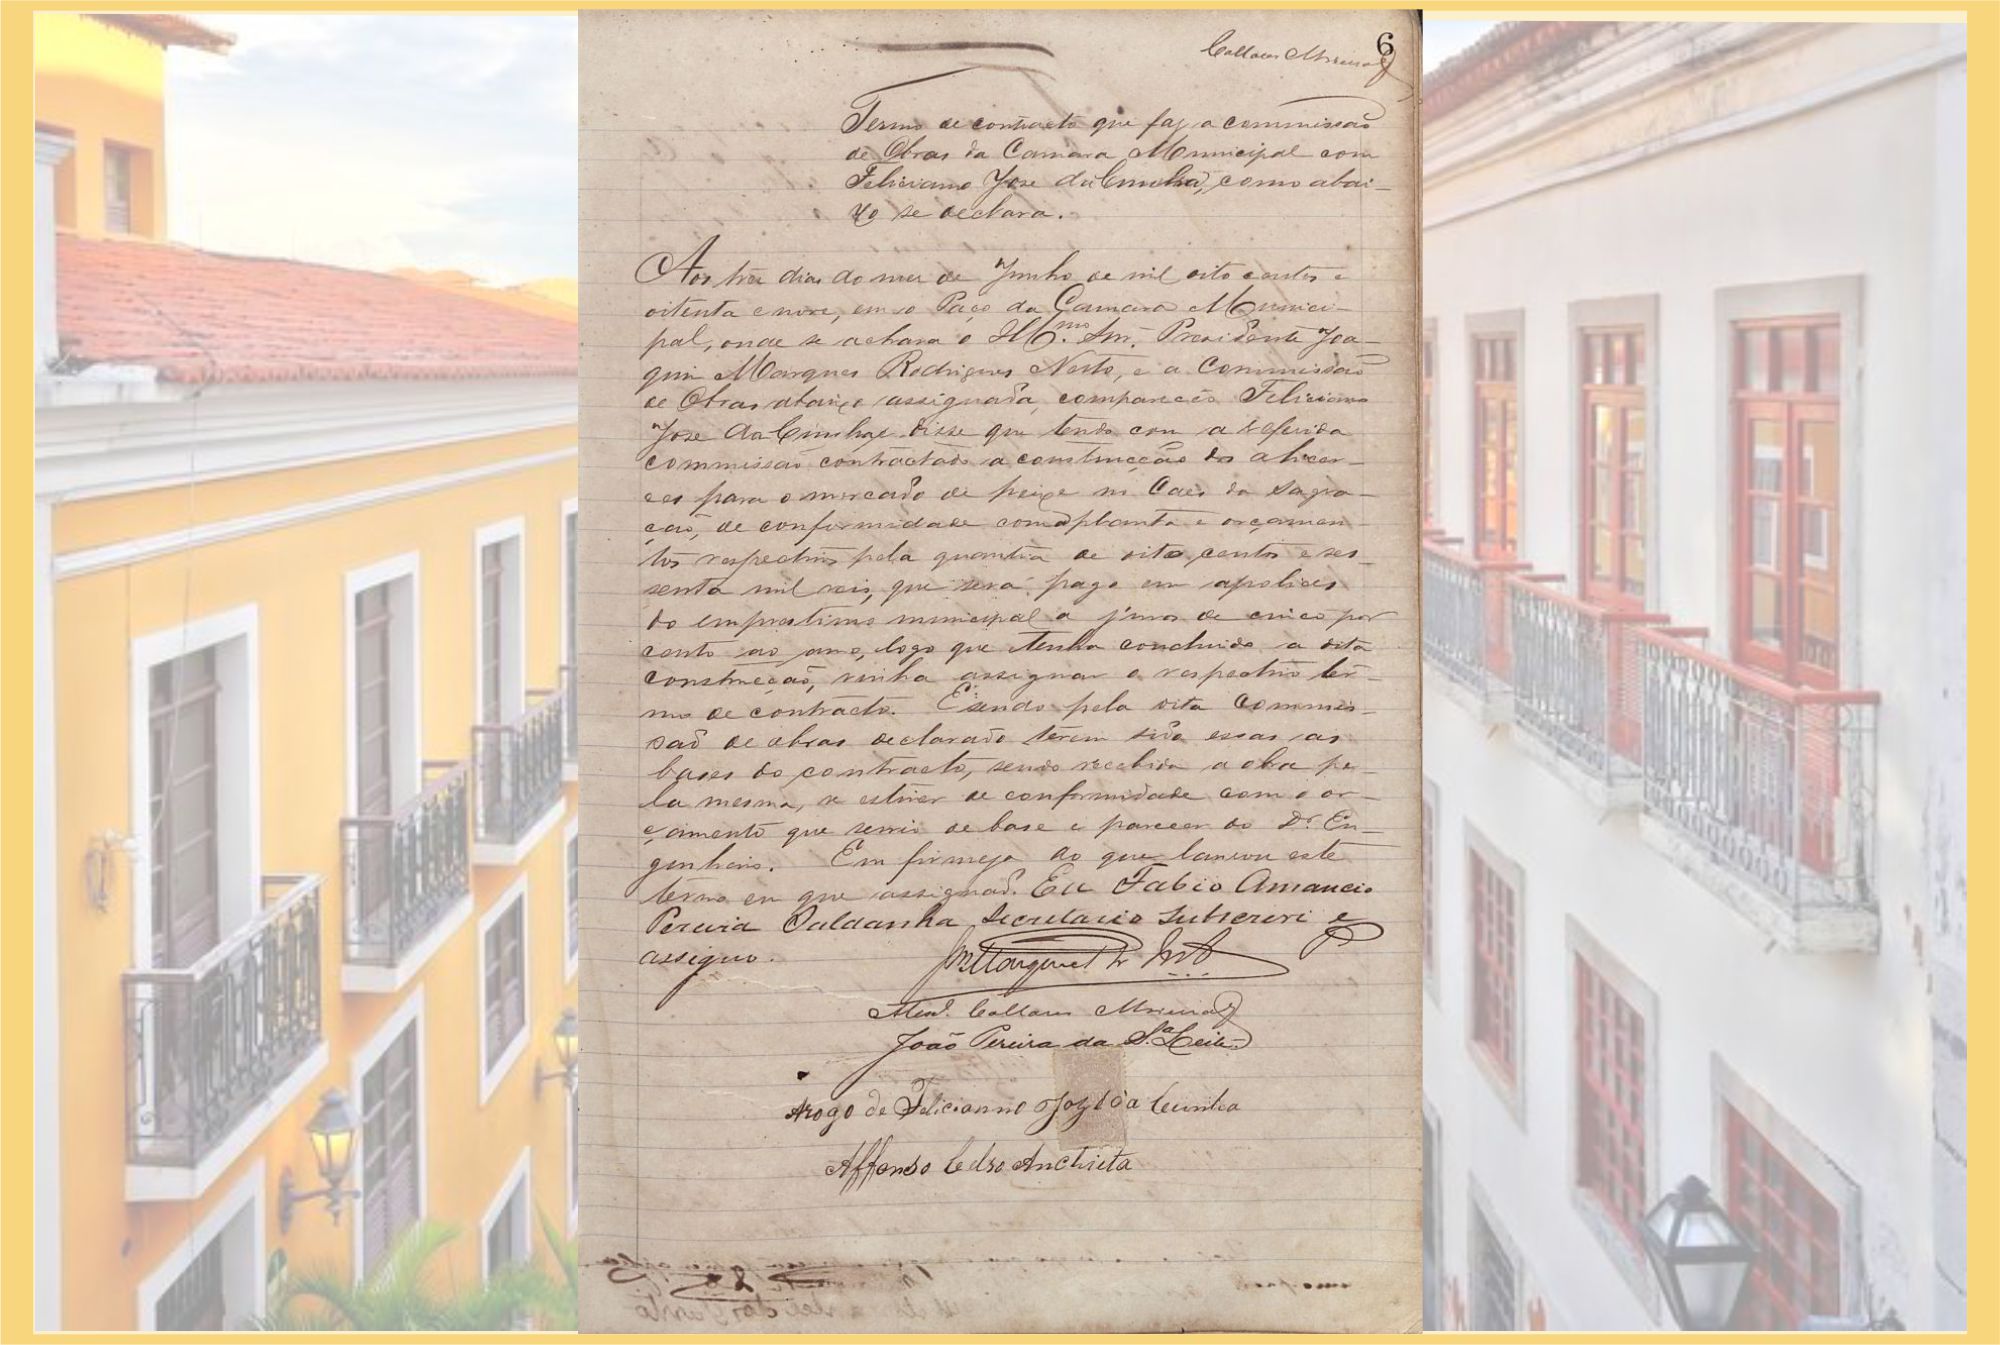 6
Collares Moreira
Termo de contracto que faz a commissão
de Obras da Camara Municipal com
Feliciano Jose da Cunha, como abai-
xo se declara.
Aos tres dias do mez de Junho de mil oito centos e
oitenta e nove, em o Paço da Camara Munici-
pal, onde se achava o Illmo. Snr. Presidente Joa-
quim Marques Rodrigues Netto, e a Commissão
de Obras abaixo assignada, compareceo Feliciano
Jose da Cunha e disse que tendo com a referida
commissão contractado a construcção dos alicer-
ces para o mercado de peixe no Caes da Sagra-
ção, de conformidade com a planta e orçamen
tos respectivos pela quantia de oito centos e ses-
senta mil reis, que será pago em apolices
do emprestimo municipal a juros de cinco por
cento ao anno, logo que tenha concluido a dita
construcção, vinha assignar o respectivo ter-
mo de contracto. E sendo pela dita Commis-
são de obras declarado terem sido essas as
bases do contracto, sendo recebida a obra pe-
la mesma, se estiver de conformidade com o or-
çamento que servio de base e parecer do Dr. En-
genheiro. Em firmeza do que lavrou este
termo em que assignão. Eu Fabio Amancio
Pereira Saldanha Secretario subscrevi e
assigno.
J. Marques R. Netto
Alexe. Collares Moreira
João Pereira da Sa. Leite
Arogo de Felicianno Joze da Cunha
Affonso Celso Anchieta